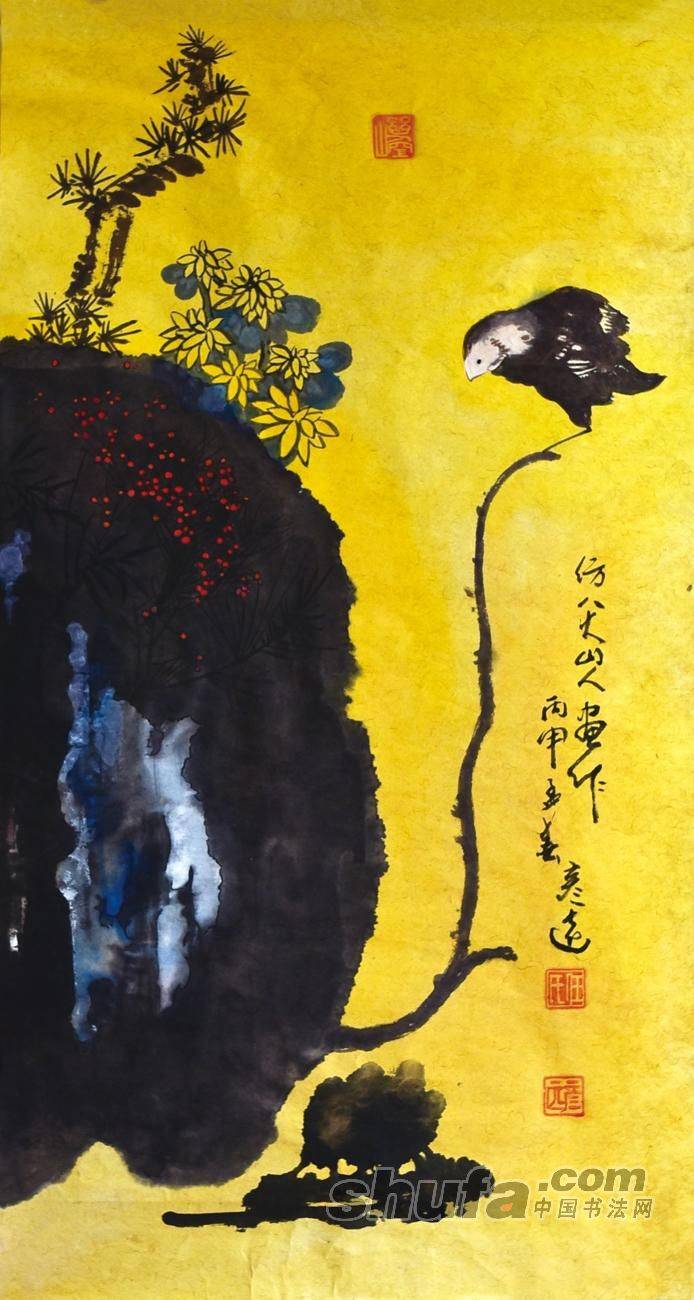 仿八大山人画作
丙申孟春
彦远
shufa.com
中国书法网